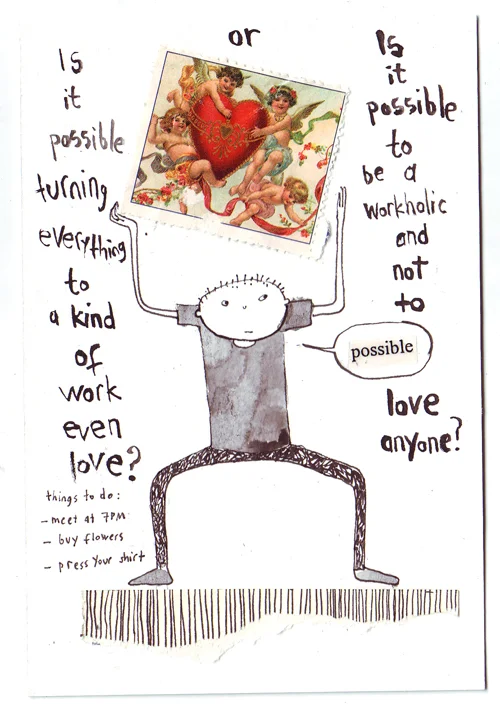 Is
it
possible
turning
everything
to
a kind
of
work
even
love?
things to do:
- meet at 7PM
- buy flowers
- press your shirt
or
Is
it
possible
to
be a
workholic
and
not
to
possible
love
anyone?